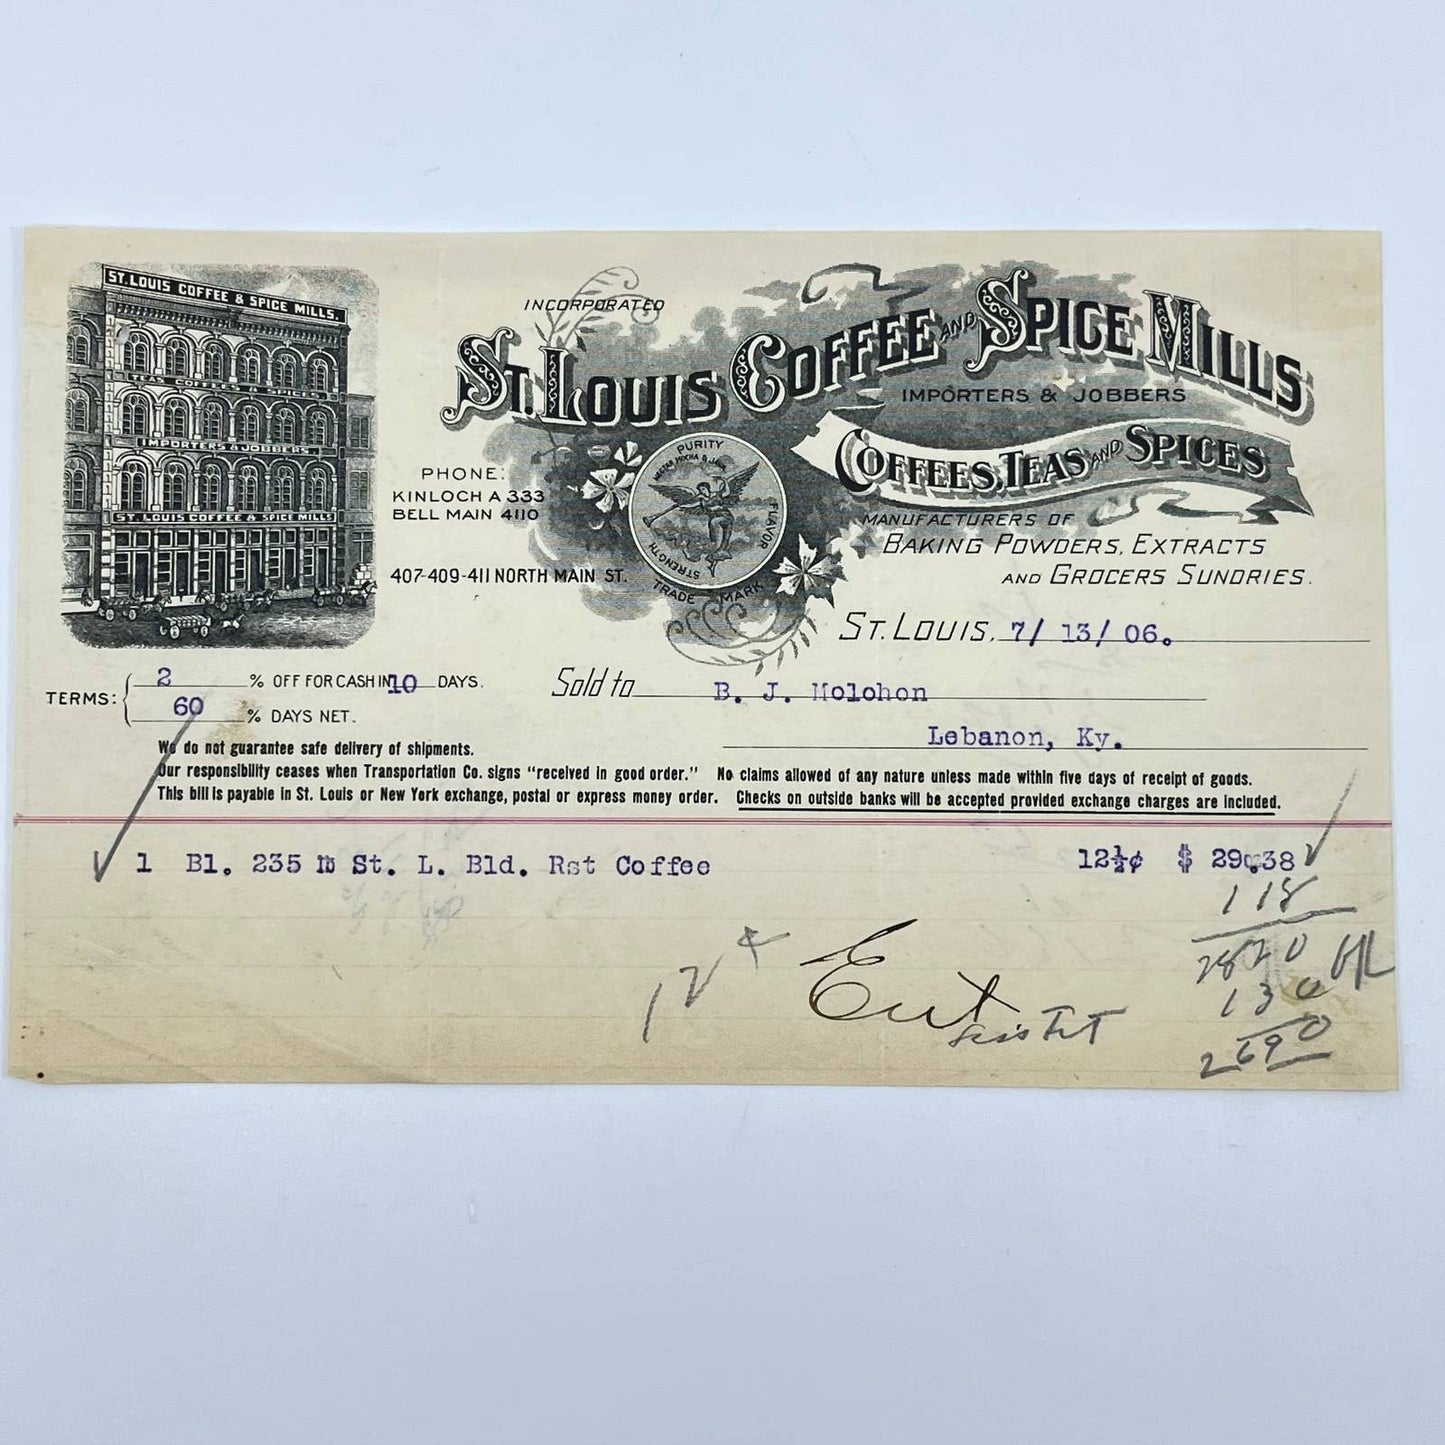 ST. LOUIS COFFEE & SPICE MILLS.
TEAS COFFEES & SPICES
IMPORTERS & JOBBERS.
ST. LOUIS COFFEE & SPICE MILLS
INCORPORATED
ST. LOUIS COFFEE AND SPICE MILLS
IMPORTERS & JOBBERS
COFFEES, TEAS AND SPICES
MANUFACTURERS OF
BAKING POWDERS, EXTRACTS
AND GROCERS SUNDRIES.
PHONE:
KINLOCH A 333
BELL MAIN 4110
407-409-411 NORTH MAIN ST.
PURITY
MOCHA & JAVA
FLAVOR
STRENGTH
TRADE MARK
ST. LOUIS, 7/ 13/ 06.
TERMS: 2 % OFF FOR CASH IN 10 DAYS.
60 % DAYS NET.
Sold to B. J. Molohon
Lebanon, Ky.
We do not guarantee safe delivery of shipments.
Our responsibility ceases when Transportation Co. signs "received in good order." No claims allowed of any nature unless made within five days of receipt of goods.
This bill is payable in St. Louis or New York exchange, postal or express money order. Checks on outside banks will be accepted provided exchange charges are included.
1 Bl. 235 lb St. L. Bld. Rst Coffee 12½¢ $ 29.38
118
2820
130
2690
Ent